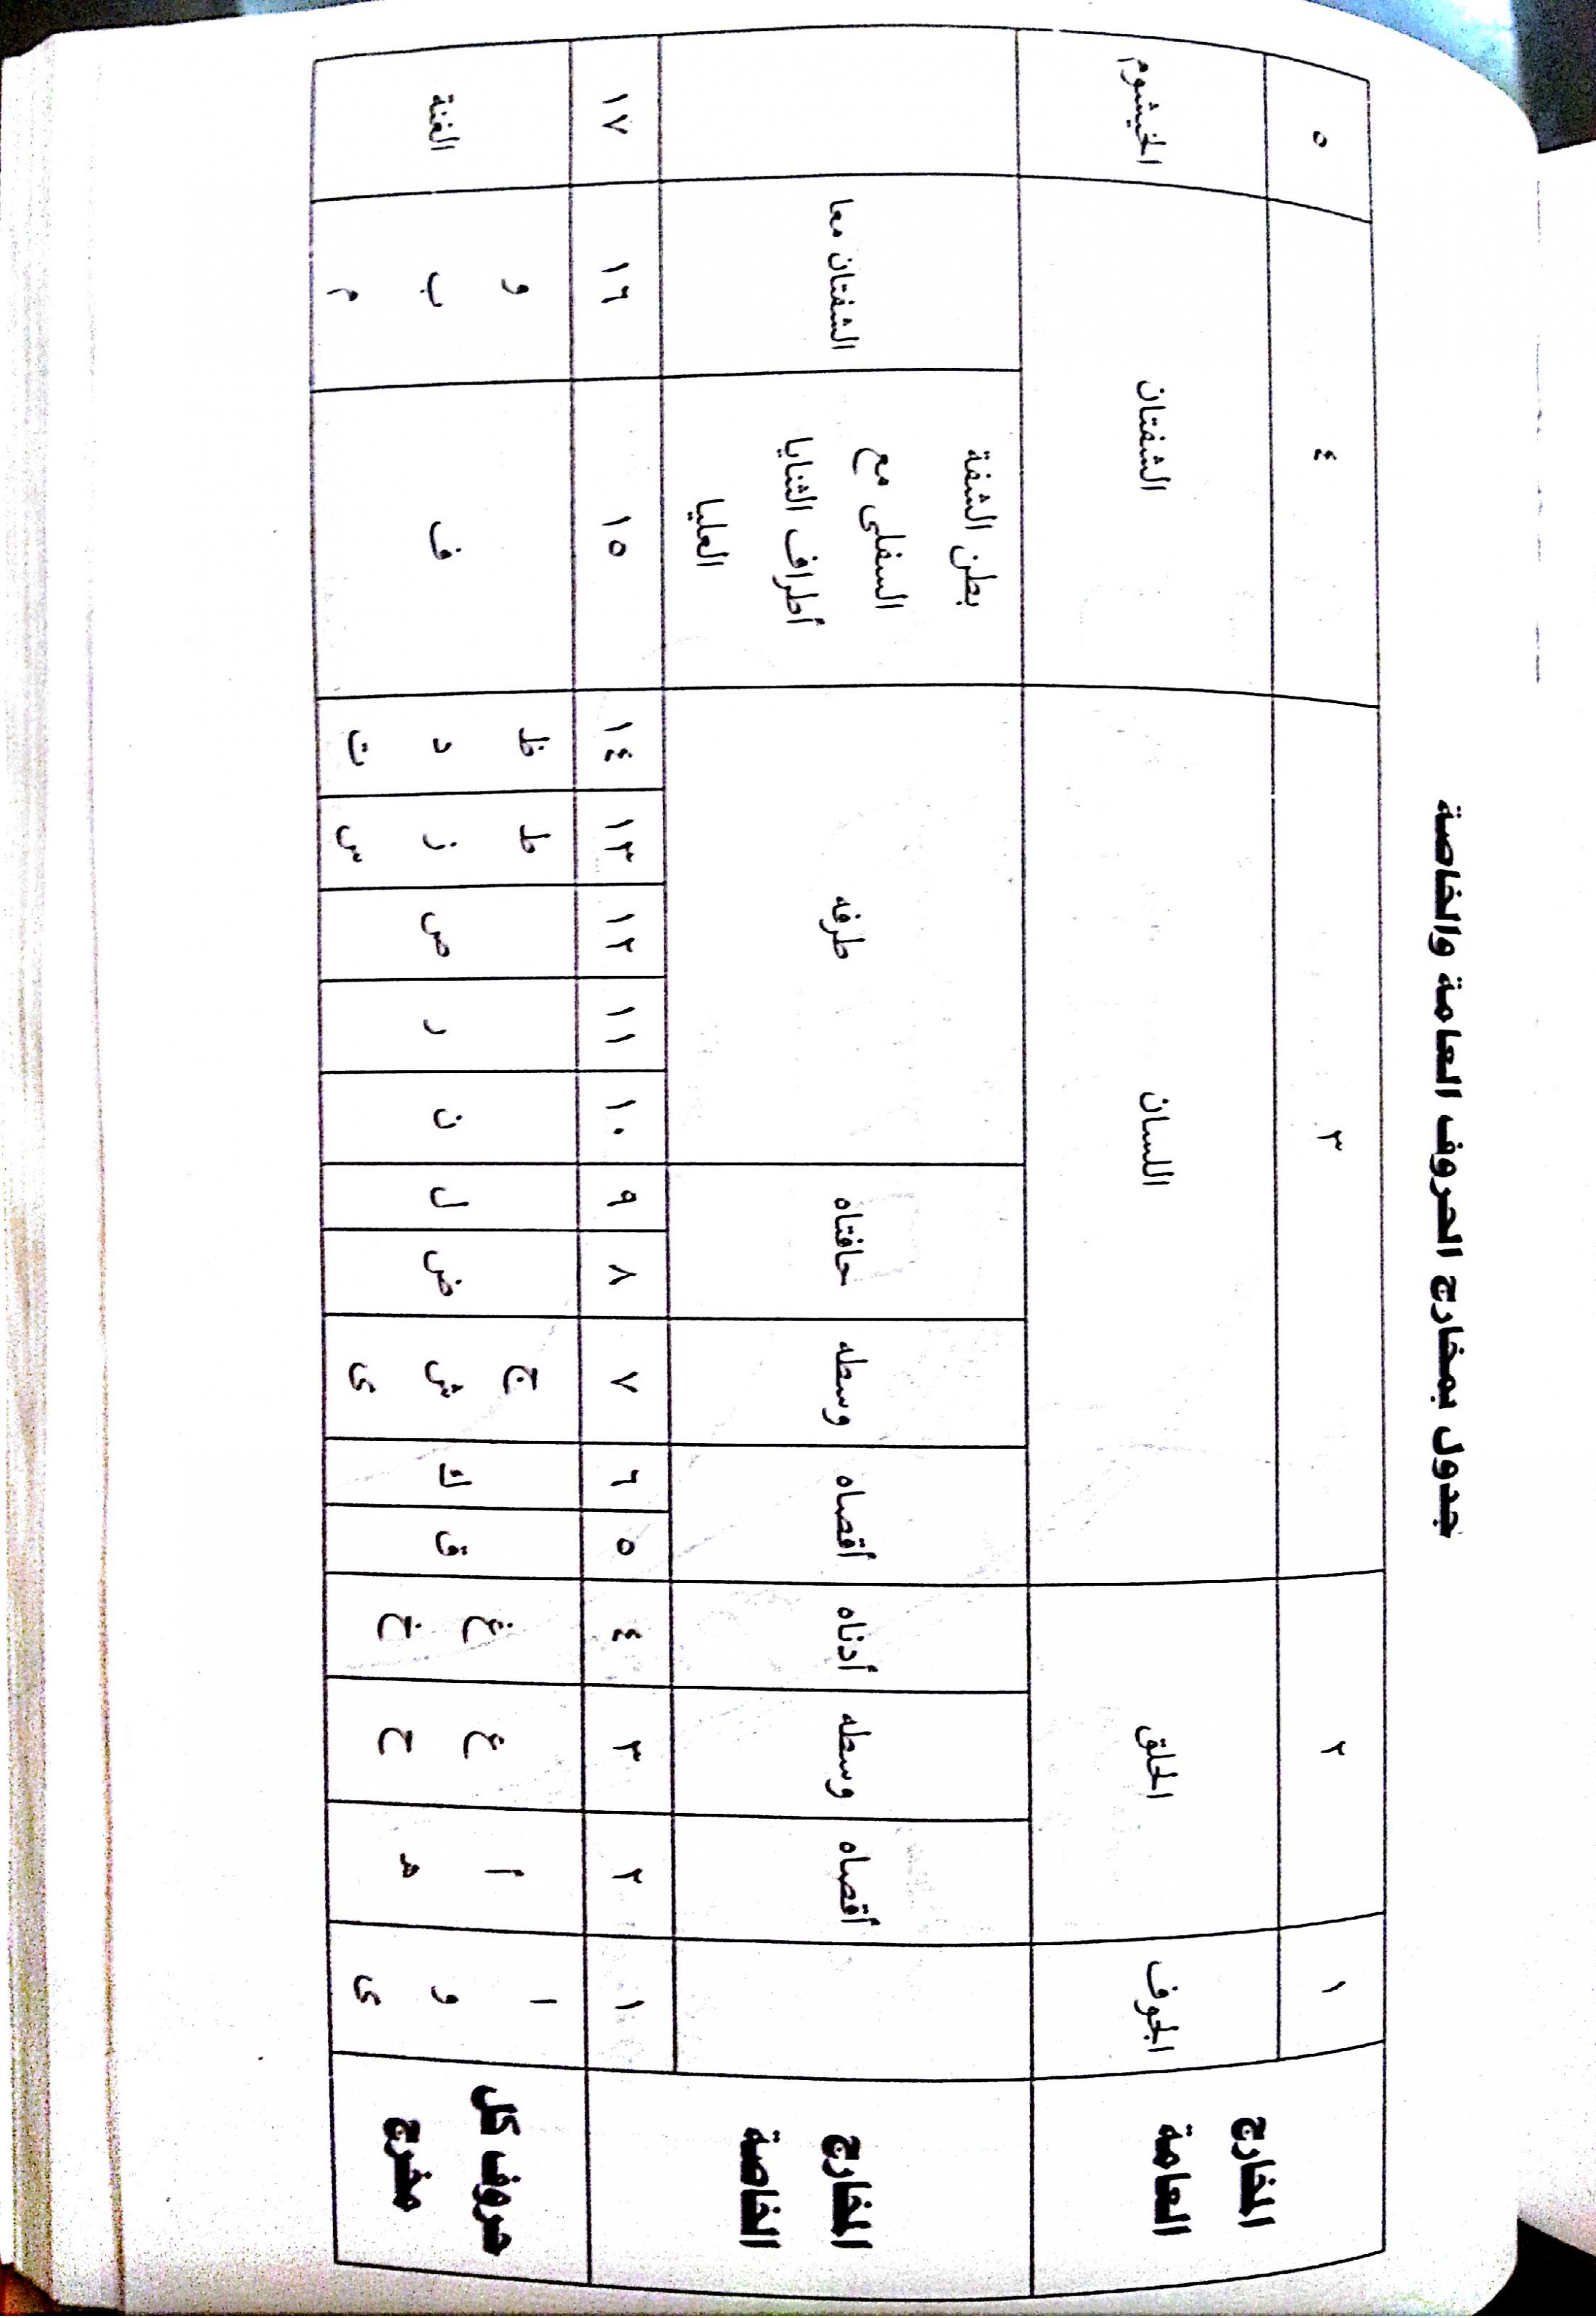 جدول بمخارج الحروف العامة والخاصة
المخارج العامة ١ ٢ ٣ ٤ ٥
الجوف الحلق اللسان الشفتان الخيشوم
المخارج الخاصة أقصاه وسطه أدناه أقصاه وسطه حافتاه طرفه بطن الشفة السفلى مع أطراف الثنايا العليا الشفتان معا
١ ٢ ٣ ٤ ٥ ٦ ٧ ٨ ٩ ١٠ ١١ ١٢ ١٣ ١٤ ١٥ ١٦ ١٧
حروف كل مخرج ا و ى أ هـ ع ح غ خ ق ك ج ش ى ض ل ن ر ص ط ز س ظ د ت ف و ب م الغنة